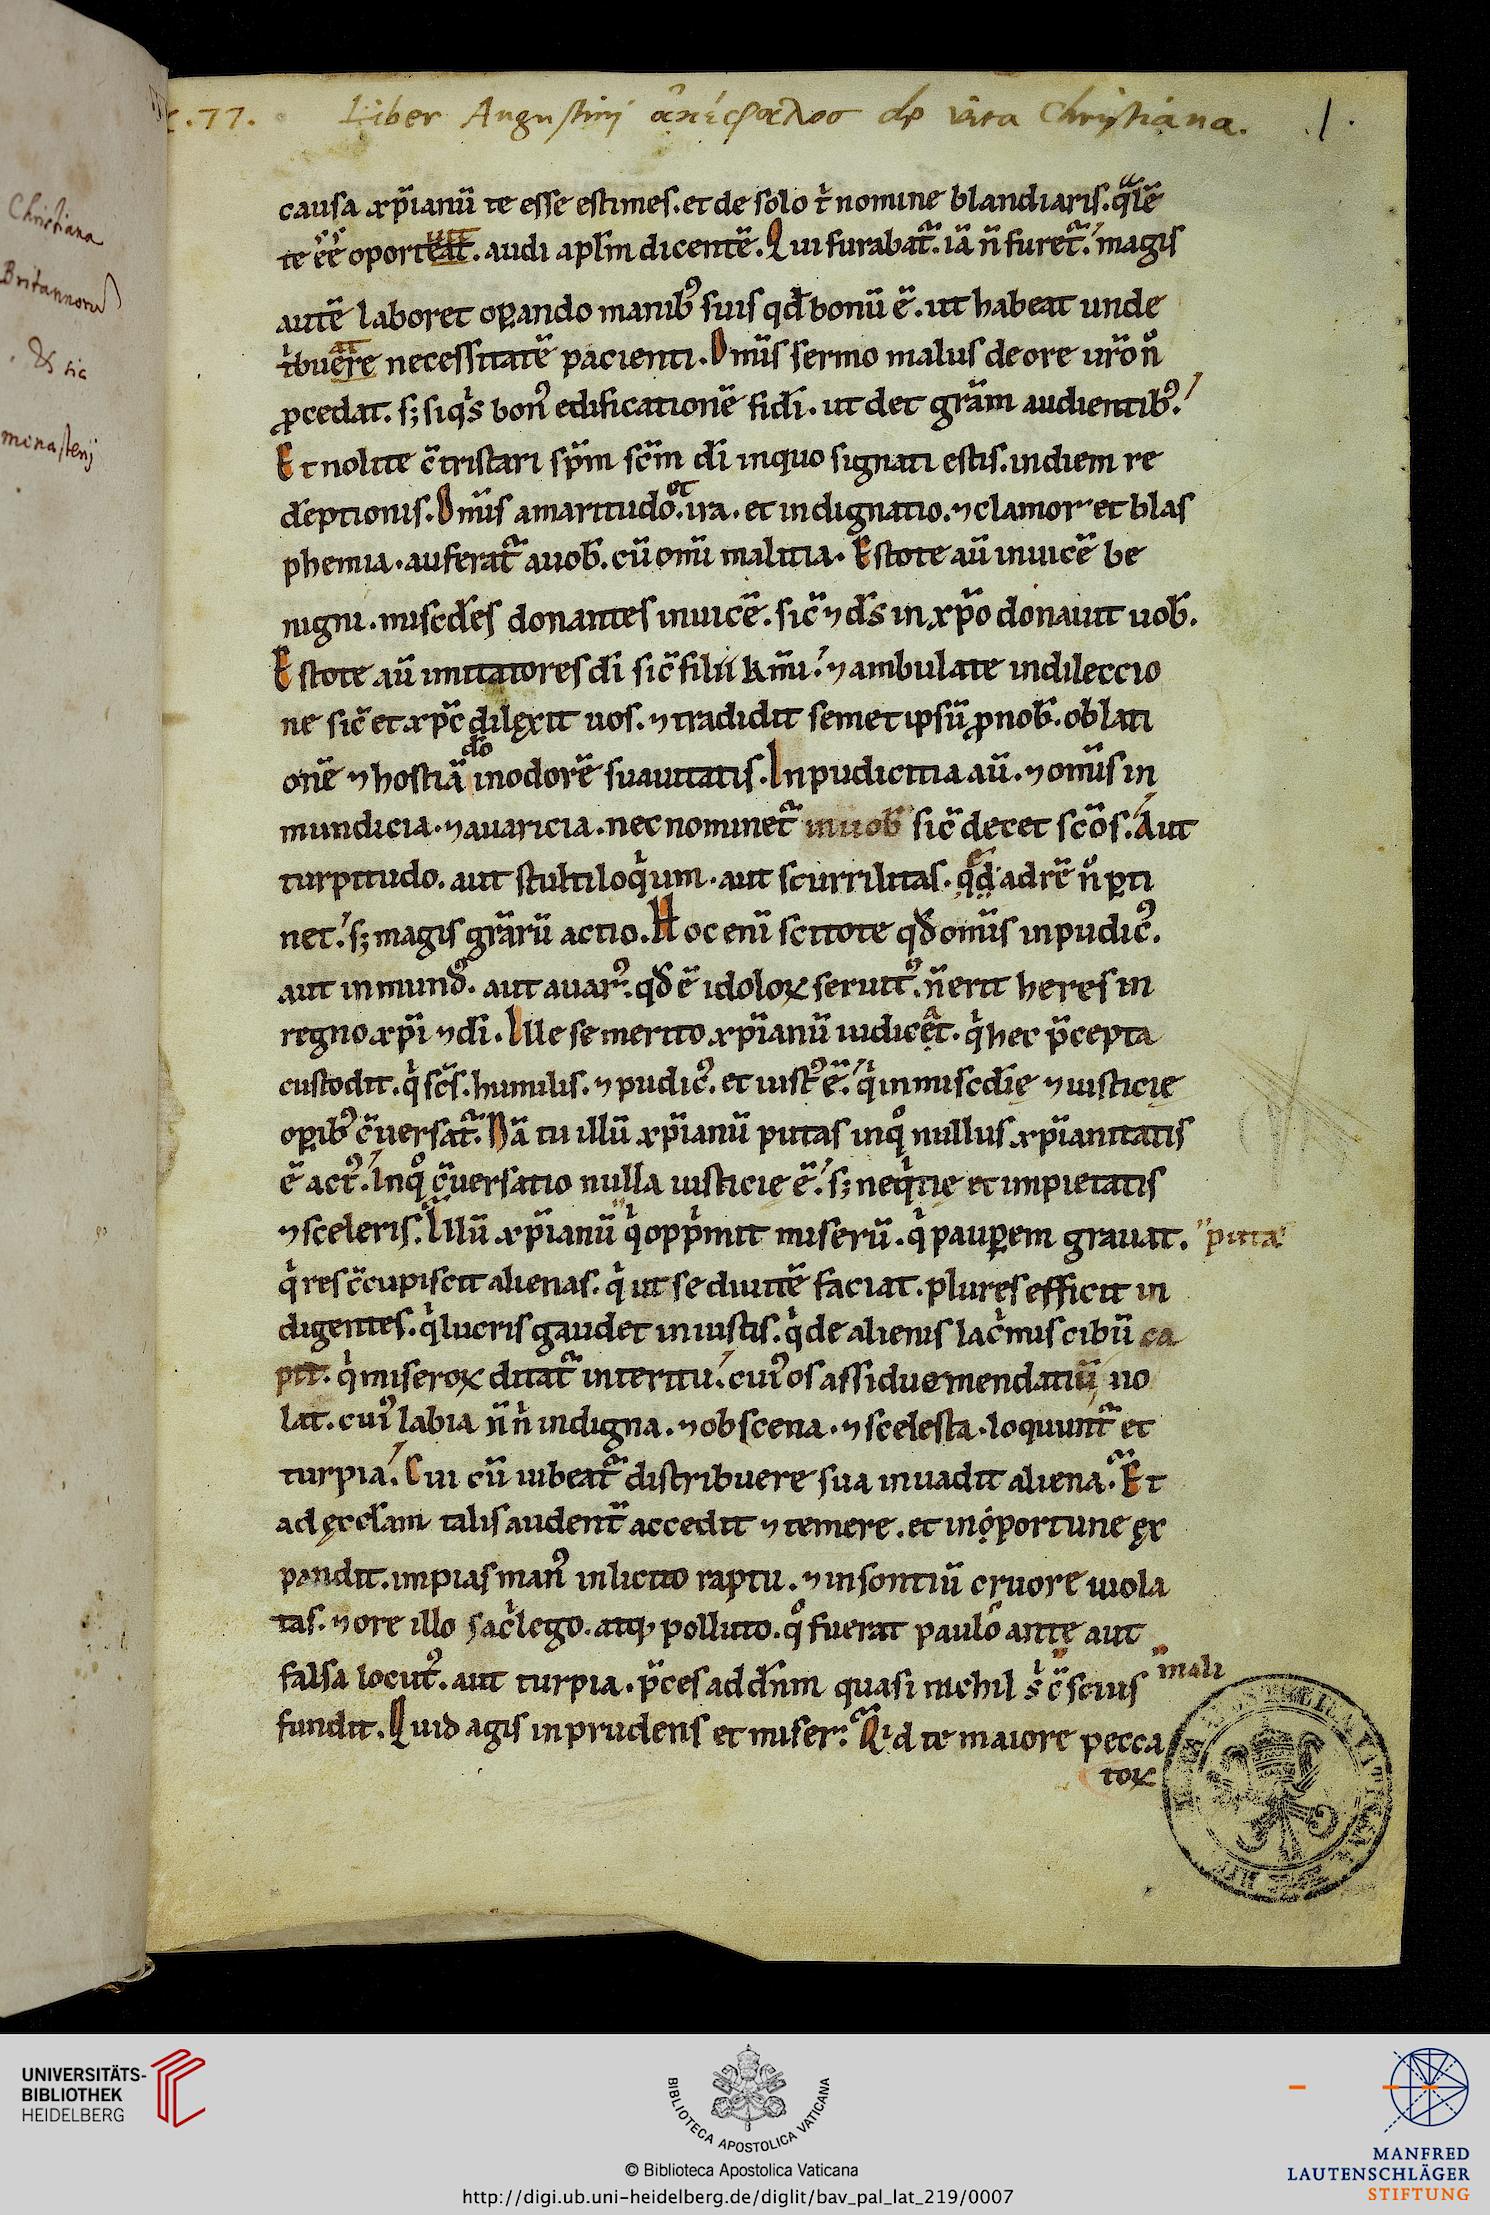 C. 77.
Liber Augustini ἀκέφαλος de vita Christiana.
.1.
Christiana
Britannorum
. Et sic
minasterij
causa xp̅ianu̅ te esse estimes. et de solo t̍ nomine blandiaris. q̅le̅
te e̅e̅ oporteat. audi apl̅m dicente̅. Qui furabat᷑. ia̅ n̅ furet᷑. magis
aute̅ laboret oꝑando manibꝰ suis qd̅ bonu̅ e̅. ut habeat unde
t̍buere necessitate̅ pacienti. Om̅is sermo malus de ore ur̅o n̅
ꝓcedat. sꝫ siq̍s bonꝰ edificatione̅ fidi̅. ut det gra̅m audientibꝰ.
Et nolite c̅tristari sp̅m sc̅m di̅ inquo signati estis. indiem re
de̅ptionis. Om̅is amaritudo. et ira. et indignatio. ⁊ clamor et blas
phemia. auferat᷑ auob̅. cu̅ om̅i malitia. Estote au̅ inuice̅ be
nigni. misc̅des donantes inuice̅. sic̅ ⁊ ds̅ in xp̅o donauit uob̅.
Estote au̅ imitatores di̅ sic̅ filii km̅i. ⁊ ambulate indileccio
ne sic̅ et xp̅c dilexit uos. ⁊ tradidit semet ipsu̅ ꝓnob̅. oblati
one̅ ⁊ hostia̅ do inodore̅ suauitatis. Inpudicitia au̅. ⁊ om̅is in
mundicia. ⁊ auaricia. nec nominet᷑ inuob̅ sic̅ decet sc̅os. Aut
turpitudo. aut stultiloq̍um. aut scurrilitas. qd̅ adre̅ n̊ ꝑti
net. sꝫ magis gra̅ru̅ actio. Hoc eni̅ scitote qd̅ om̅is inpudicꝰ.
aut inmundꝰ. aut auarꝰ. qd̅ e̅ idoloꝝ seruitꝰ. n̅ erit heres in
regno xp̅i ⁊ di̅. Ille se merito xp̅ianu̅ iudicet. q̍ hec p̅cepta
custodit. q̍ sc̅s. humilis. ⁊ pudicꝰ. et iustꝰ e̅. q̍ inmisc̅die ⁊ iusticie
oꝑibꝰ c̅uersat᷑. Na̅ tu illu̅ xp̅ianu̅ putas inq̊ nullus xp̅ianitatis
e̅ actꝰ. Inq̊ c̅uersatio nulla iusticie e̅. sꝫ neq̍tie et impietatis
⁊ sceleris. Illu̅ xp̅ianu̅ q̍ opp̍mit miseru̅. q̍ pauꝑem grauat. puta
q̍ res c̅cupiscit alienas. q̍ ut se diuite̅ faciat. plures efficit in
digentes. q̍ lucris gaudet iniustis. q̍ de alienis lac̍mis cibu̅ ca
pit. q̍ miseroꝝ ditat᷑ interitu. cuiꝰ os assidue mendatiu̅ uo
lat. cuiꝰ labia n̅ n̍ indigna. ⁊ obscena. ⁊ scelesta. loquunt᷑ et
turpia. Cui cu̅ iubeat᷑ distribuere sua inuadit aliena. Et
ad eccl̅am talis audent᷑ accedit ⁊ temere. et inoportune ex
pandit. impias manꝰ inlicito raptu. ⁊ insontiu̅ cruore uiola
tas. ⁊ ore illo sac̍lego. atqꝫ polluto. q̊ fuerat paulo ante aut
falsa locutꝰ. aut turpia. p̅ces ad dn̅m quasi nichil s̍ c̅scius mali
fundit. Quid agis inprudens et miser. Q̍d te maiore pecca
toꝝ
UNIVERSITÄTS-
BIBLIOTHEK
HEIDELBERG
BIBLIOTECA APOSTOLICA VATICANA
© Biblioteca Apostolica Vaticana
http://digi.ub.uni-heidelberg.de/diglit/bav_pal_lat_219/0007
MANFRED
LAUTENSCHLÄGER
STIFTUNG